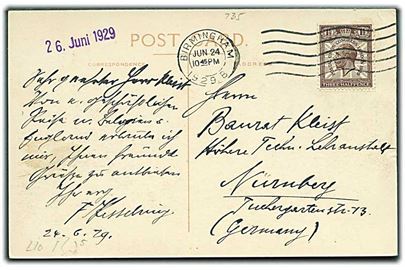 735
26. Juni 1929
POST CARD.
CORRESPONDENCE
ADDRESS
BIRMINGHAM
JUN 24
10 45 PM
1929
THREE HALFPENCE
Sehr geehrter Herr Kleist
Von e. geschäftlichen
Reise n.
England erlaube ich
mir, Ihnen freundl.
Grüsse zu entbieten
Ihr erg.
F.
24.6.29.
Herrn
Baurat Kleist
Höhere Techn. Lehranstalt
Nürnberg
Tuchergartenstr. 13.
(Germany)